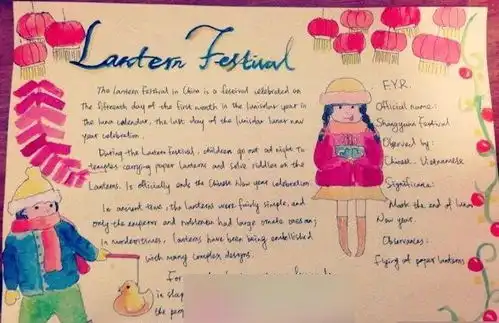 Lantern Festival
The Lantern Festival in China is a festival celebrated on
the fifteenth day of the first month in the lunisolar year in
the luna calendar, the last day of the lunisolar lunar new
year celebration.
During the Lantern Festival, children go out at night to
temples carrying paper lanterns and solve riddles on the
lanterns. Is officially ends the Chinese New year celebration.
In ancient time, the lanterns were fairly simple, and
only the emperor and noblemen had large ornate ones;
In modern times, lanterns have been being embellished
with many complex designs.
For
in
the
F.Y.R.
Official name:
Shangyuan Festival
Observed by:
Chinese. Vietnamese
Significance:
Mark the end of lunar
New year.
Observances:
Flying of paper lanterns